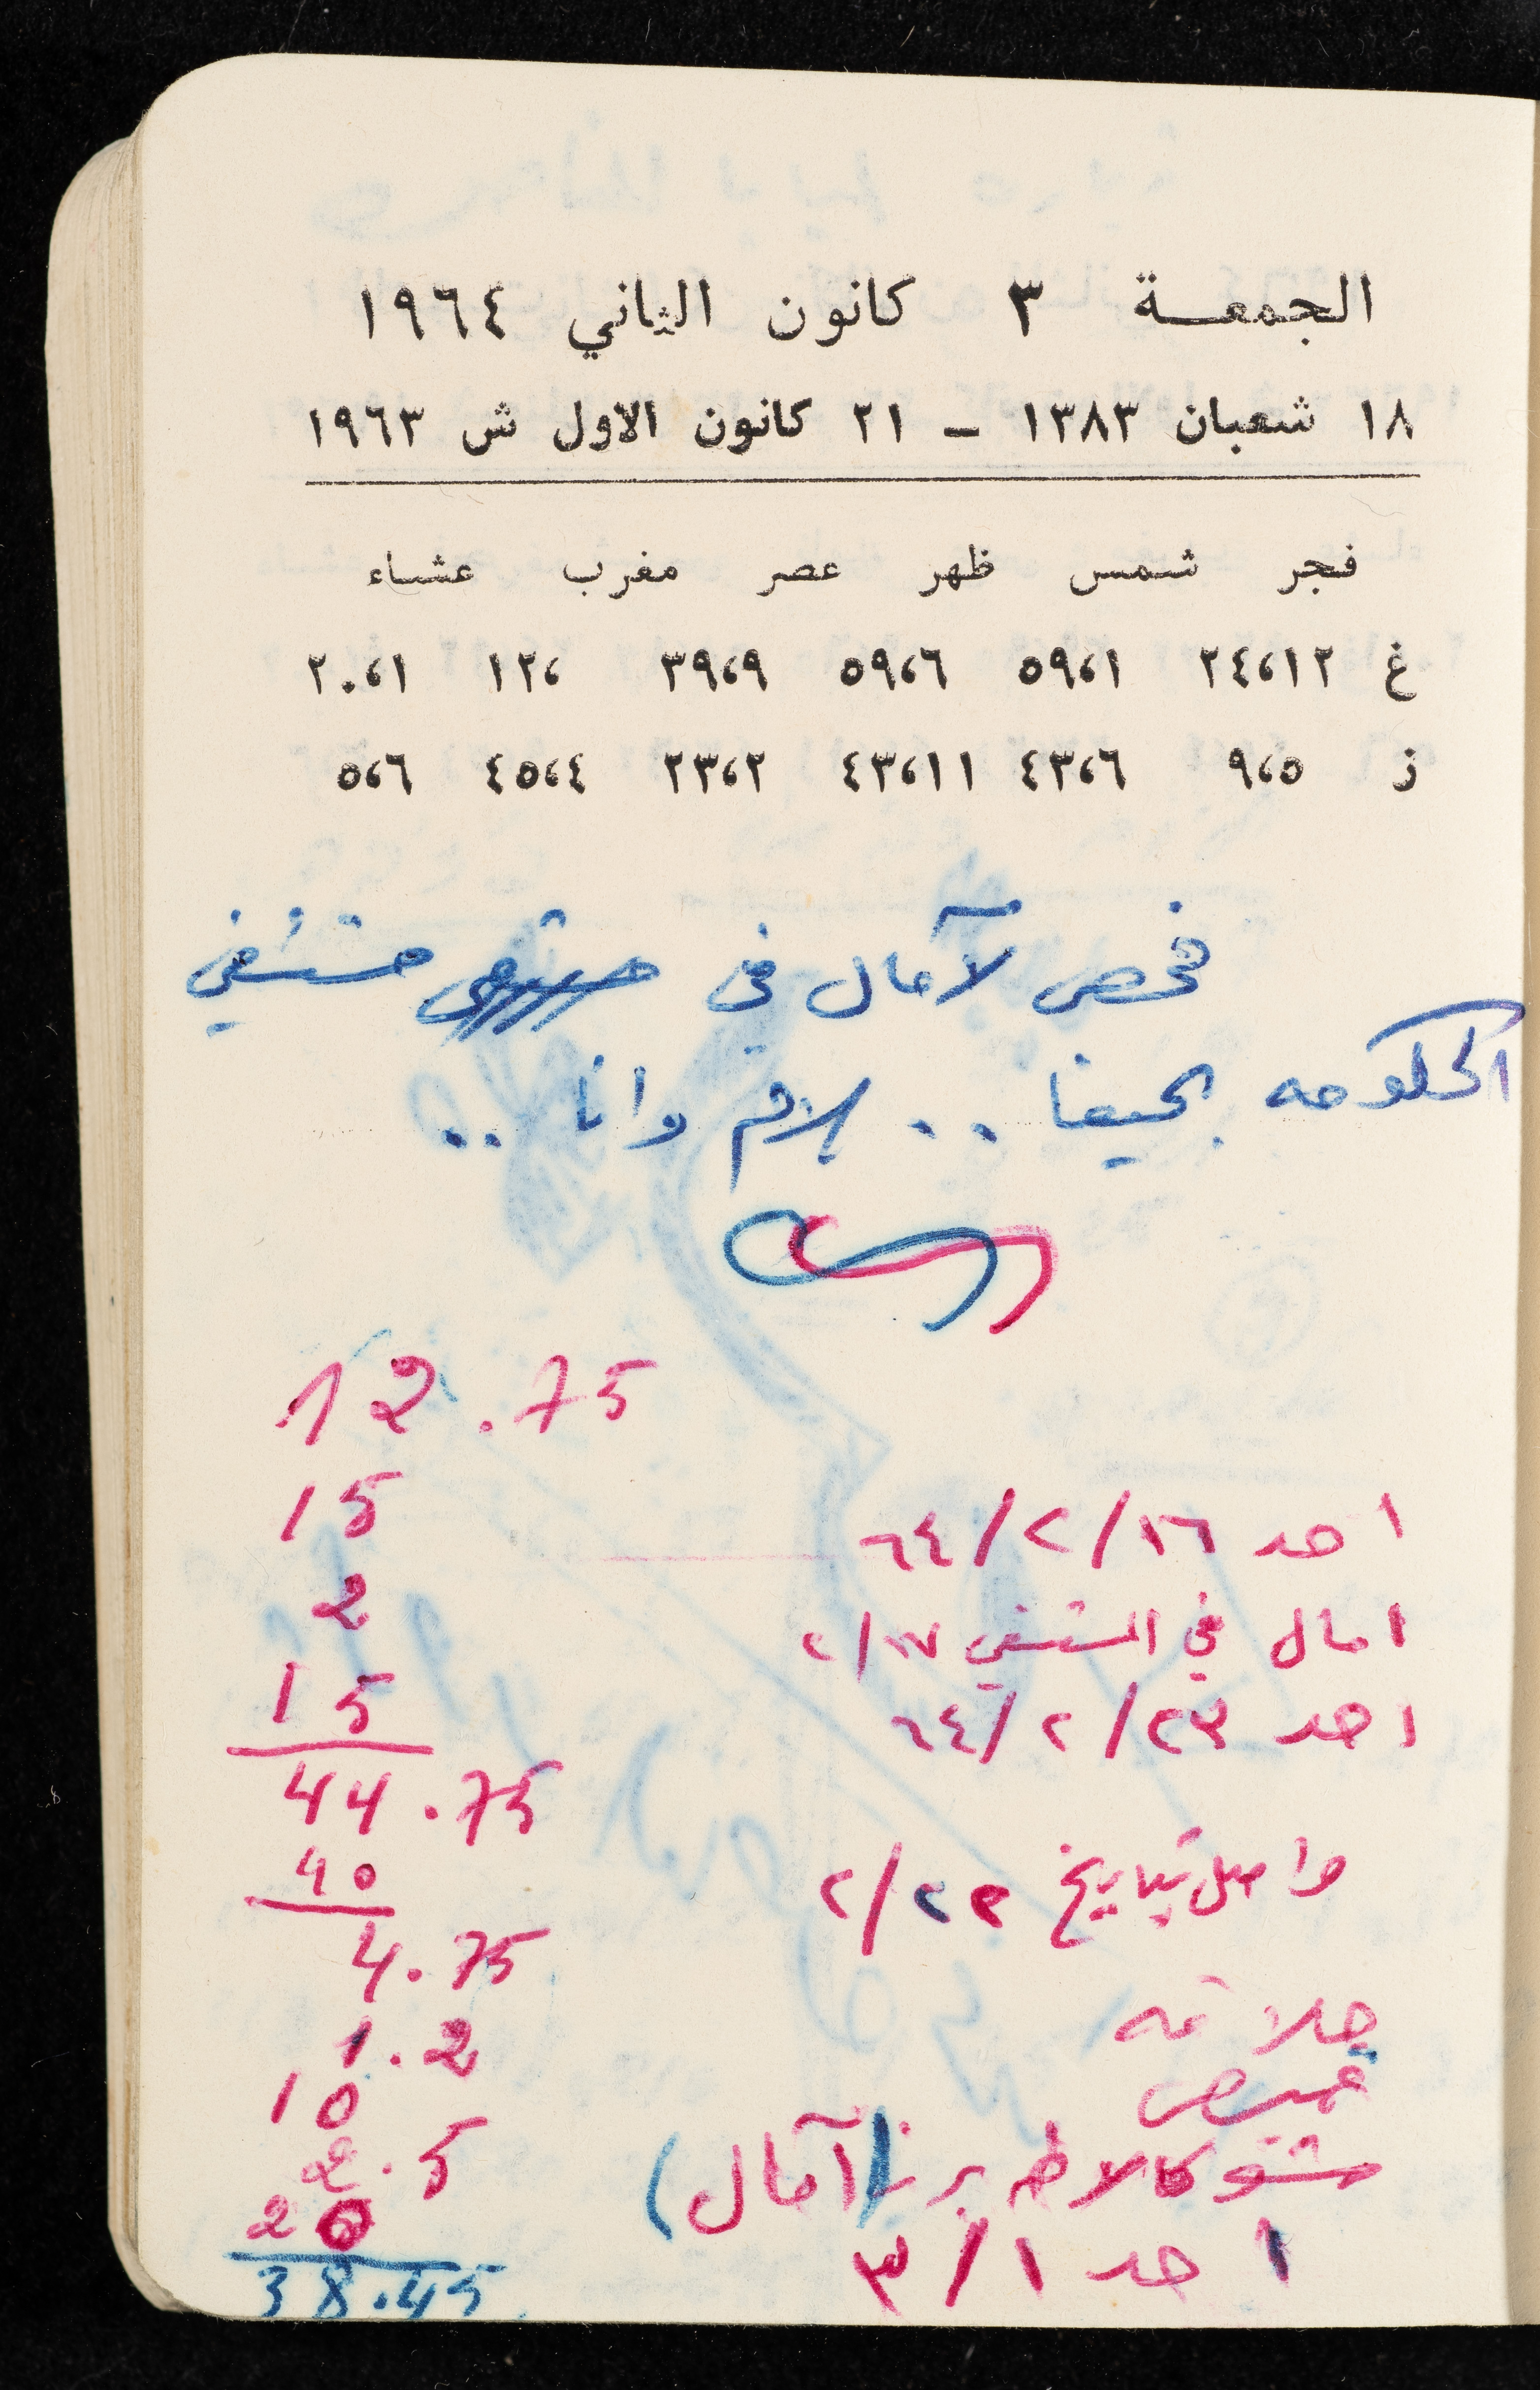 الجمعة ٣ كانون الثاني ١٩٦٤
١٨ شعبان ١٣٨٣ – ٢١ كانون الاول ش ١٩٦٣
فجر شمس ظهر عصر مغرب عشاء
غ ٢٤،١٢ ٥٩،١ ٥٩،٦ ٣٩،٩ ١٢، ٢٠،١
ز ٩،٥ ٤٣،٦ ٤٣،١١ ٢٣،٢ ٤٥،٤ ٥،٦
فحص لآمال في مستشفي
الحكومه بحيفا .. وانا ..
12.75
15 احد ١٦/٢/٦٤
2 امال في المستشفي ١٧/٢
15 احد ٢٣/٢/٦٤
44.75
40 واصل بتاريخ ٢٣/٢
4.75
1.2 حلاقه
10 قميص
2.5 شوكالاطه (آمال)
20 احد ١/٣
38.45